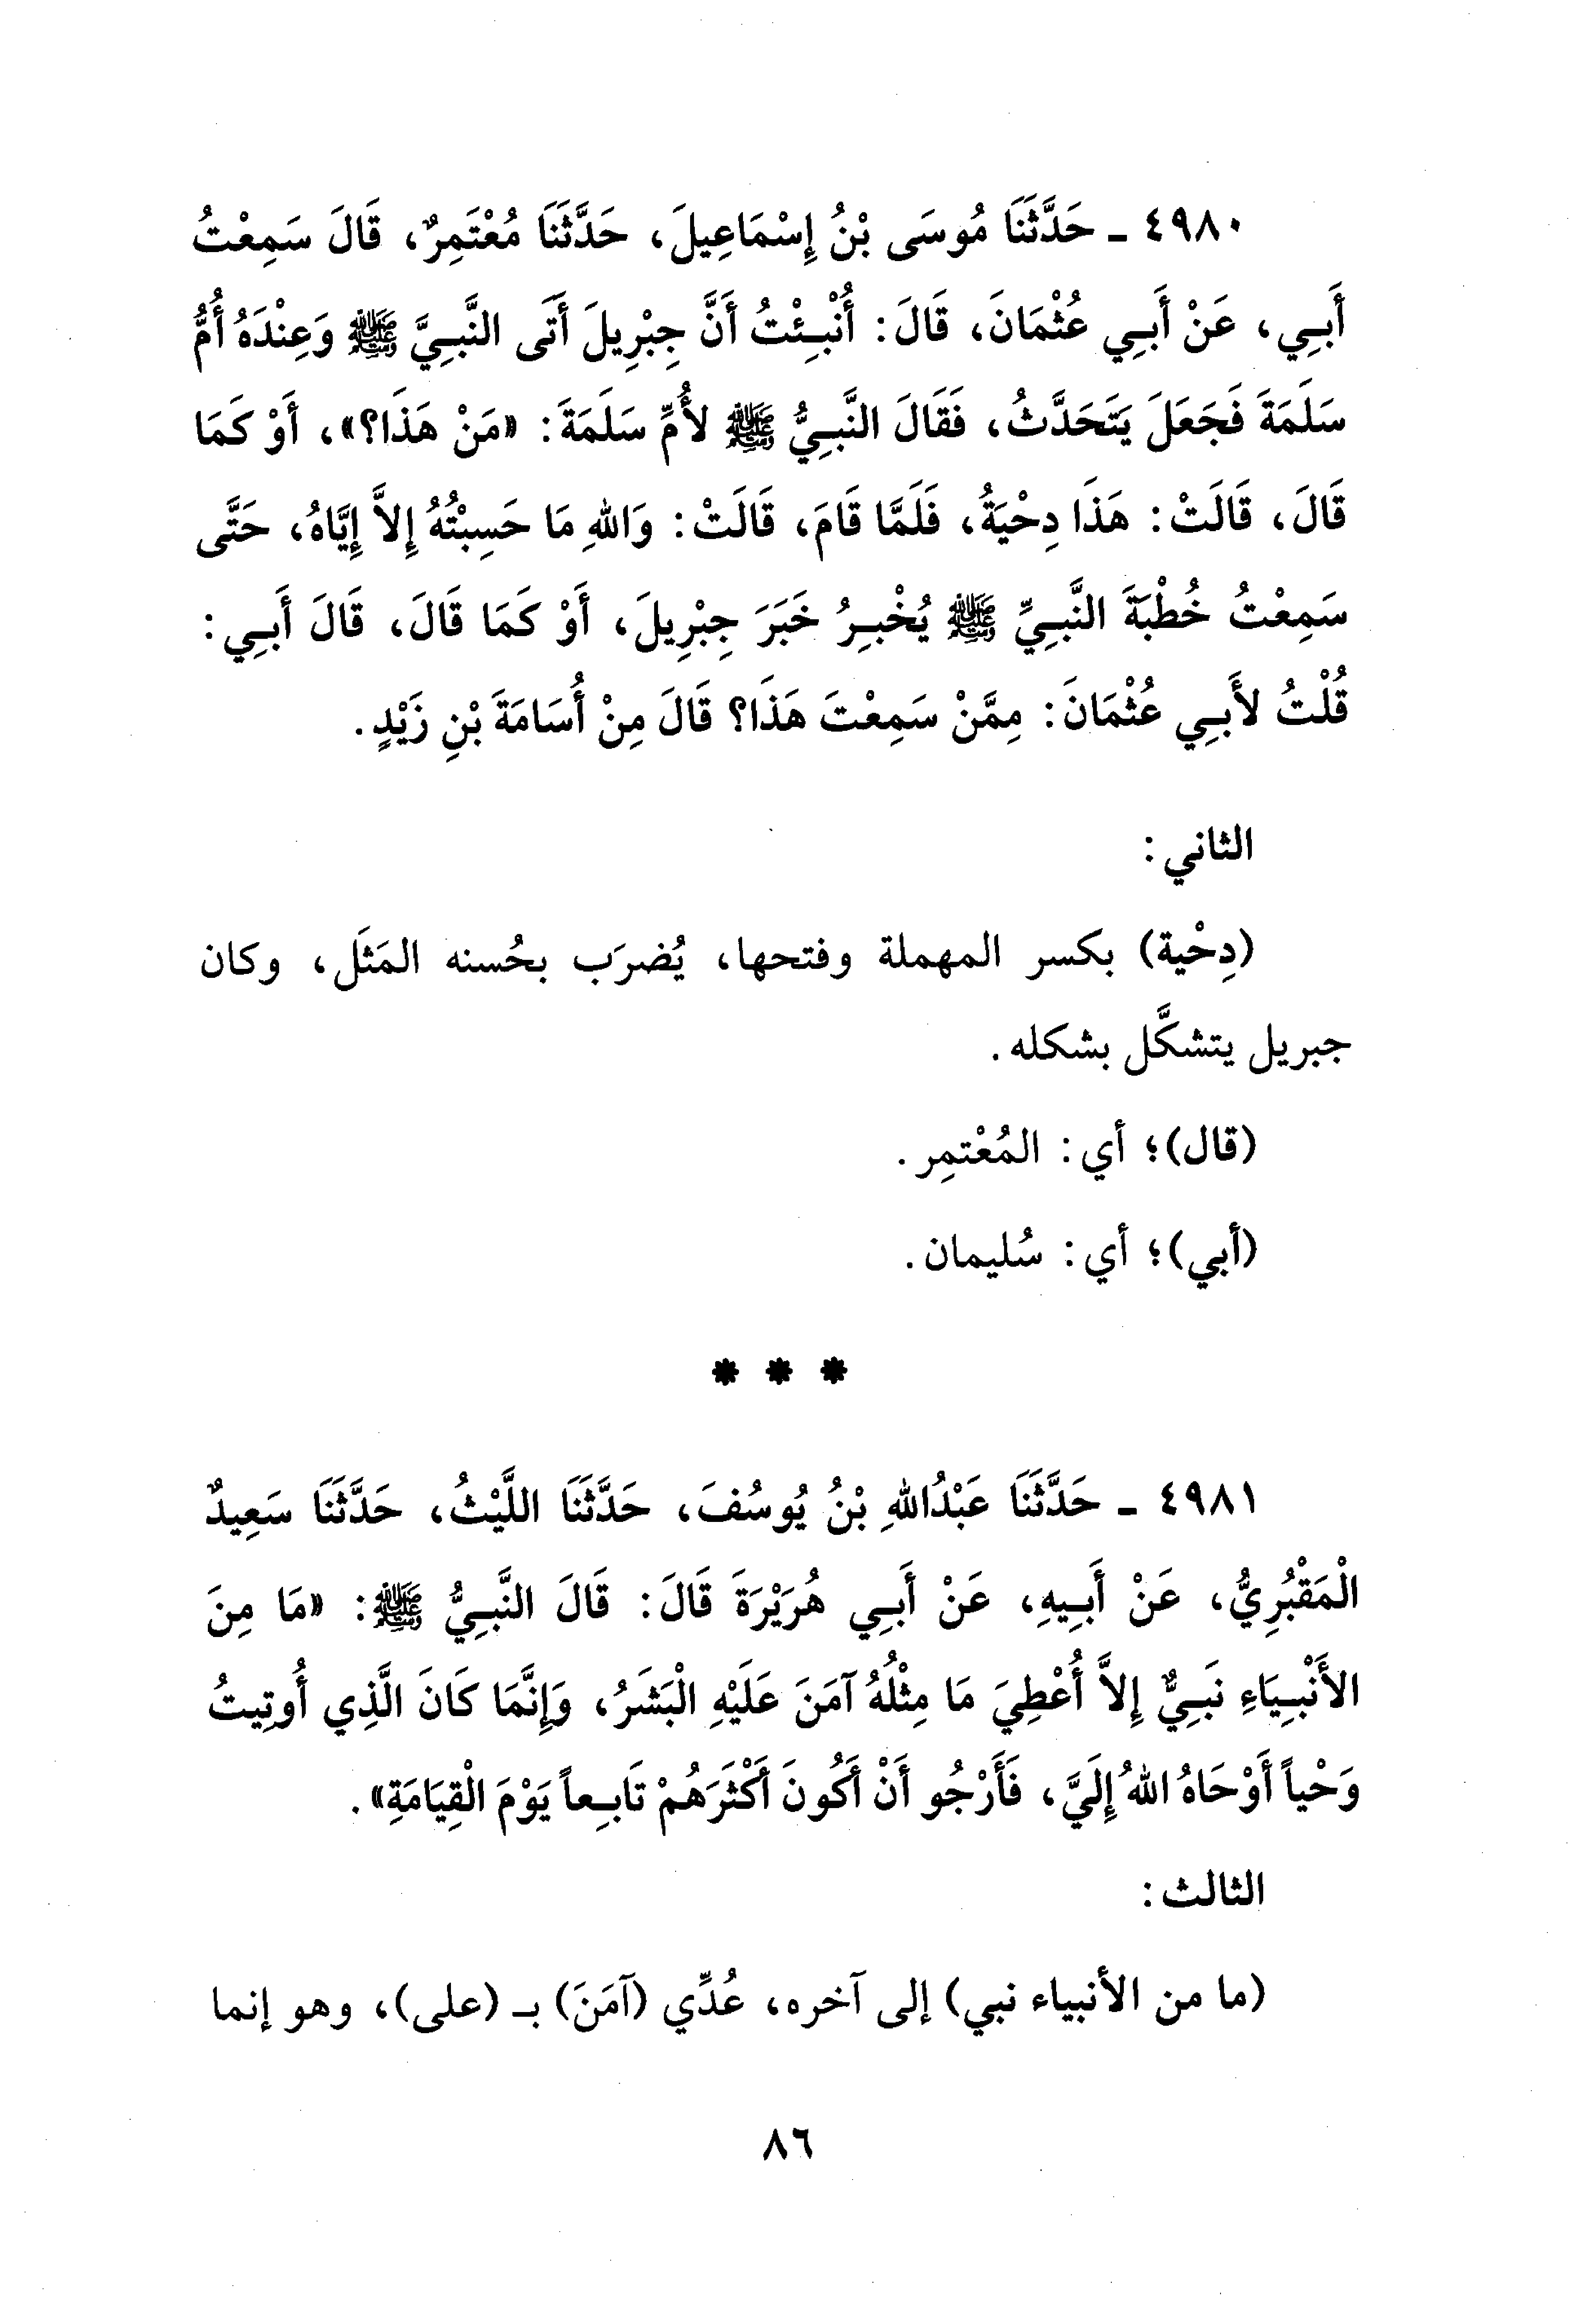 ٤٩٨٠ ـ حَدَّثَنَا مُوسَى بْنُ إِسْمَاعِيلَ، حَدَّثَنَا مُعْتَمِرٌ، قَالَ سَمِعْتُ
أَبِي، عَنْ أَبِي عُثْمَانَ، قَالَ: أُنْبِئْتُ أَنَّ جِبْرِيلَ أَتَى النَّبِيَّ ﷺ وَعِنْدَهُ أُمُّ
سَلَمَةَ فَجَعَلَ يَتَحَدَّثُ، فَقَالَ النَّبِيُّ ﷺ لأُمِّ سَلَمَةَ: «مَنْ هَذَا؟»، أَوْ كَمَا
قَالَ، قَالَتْ: هَذَا دِحْيَةُ، فَلَمَّا قَامَ، قَالَتْ: وَاللهِ مَا حَسِبْتُهُ إِلاَّ إِيَّاهُ، حَتَّى
سَمِعْتُ خُطْبَةَ النَّبِيِّ ﷺ يُخْبِرُ خَبَرَ جِبْرِيلَ، أَوْ كَمَا قَالَ، قَالَ أَبِي:
قُلْتُ لأَبِي عُثْمَانَ: مِمَّنْ سَمِعْتَ هَذَا؟ قَالَ مِنْ أُسَامَةَ بْنِ زَيْدٍ.
الثاني:
(دِحْية) بكسر المهملة وفتحها، يُضرَب بحُسنه المَثَل، وكان
جبريل يتشكَّل بشكله.
(قال)؛ أي: المُعْتمِر.
(أبي)؛ أي: سُليمان.
* * *
٤٩٨١ ـ حَدَّثَنَا عَبْدُاللهِ بْنُ يُوسُفَ، حَدَّثَنَا اللَّيْثُ، حَدَّثَنَا سَعِيدٌ
الْمَقْبُرِيُّ، عَنْ أَبِيهِ، عَنْ أَبِي هُرَيْرَةَ قَالَ: قَالَ النَّبِيُّ ﷺ: «مَا مِنَ
الأَنْبِيَاءِ نَبِيٌّ إِلاَّ أُعْطِيَ مَا مِثْلُهُ آمَنَ عَلَيْهِ الْبَشَرُ، وَإِنَّمَا كَانَ الَّذِي أُوتِيتُ
وَحْياً أَوْحَاهُ اللهُ إِلَيَّ، فَأَرْجُو أَنْ أَكُونَ أَكْثَرَهُمْ تَابِعاً يَوْمَ الْقِيَامَةِ».
الثالث:
(ما من الأنبياء نبي) إلى آخره، عُدِّي (آمَنَ) بـ (على)، وهو إنما
٨٦